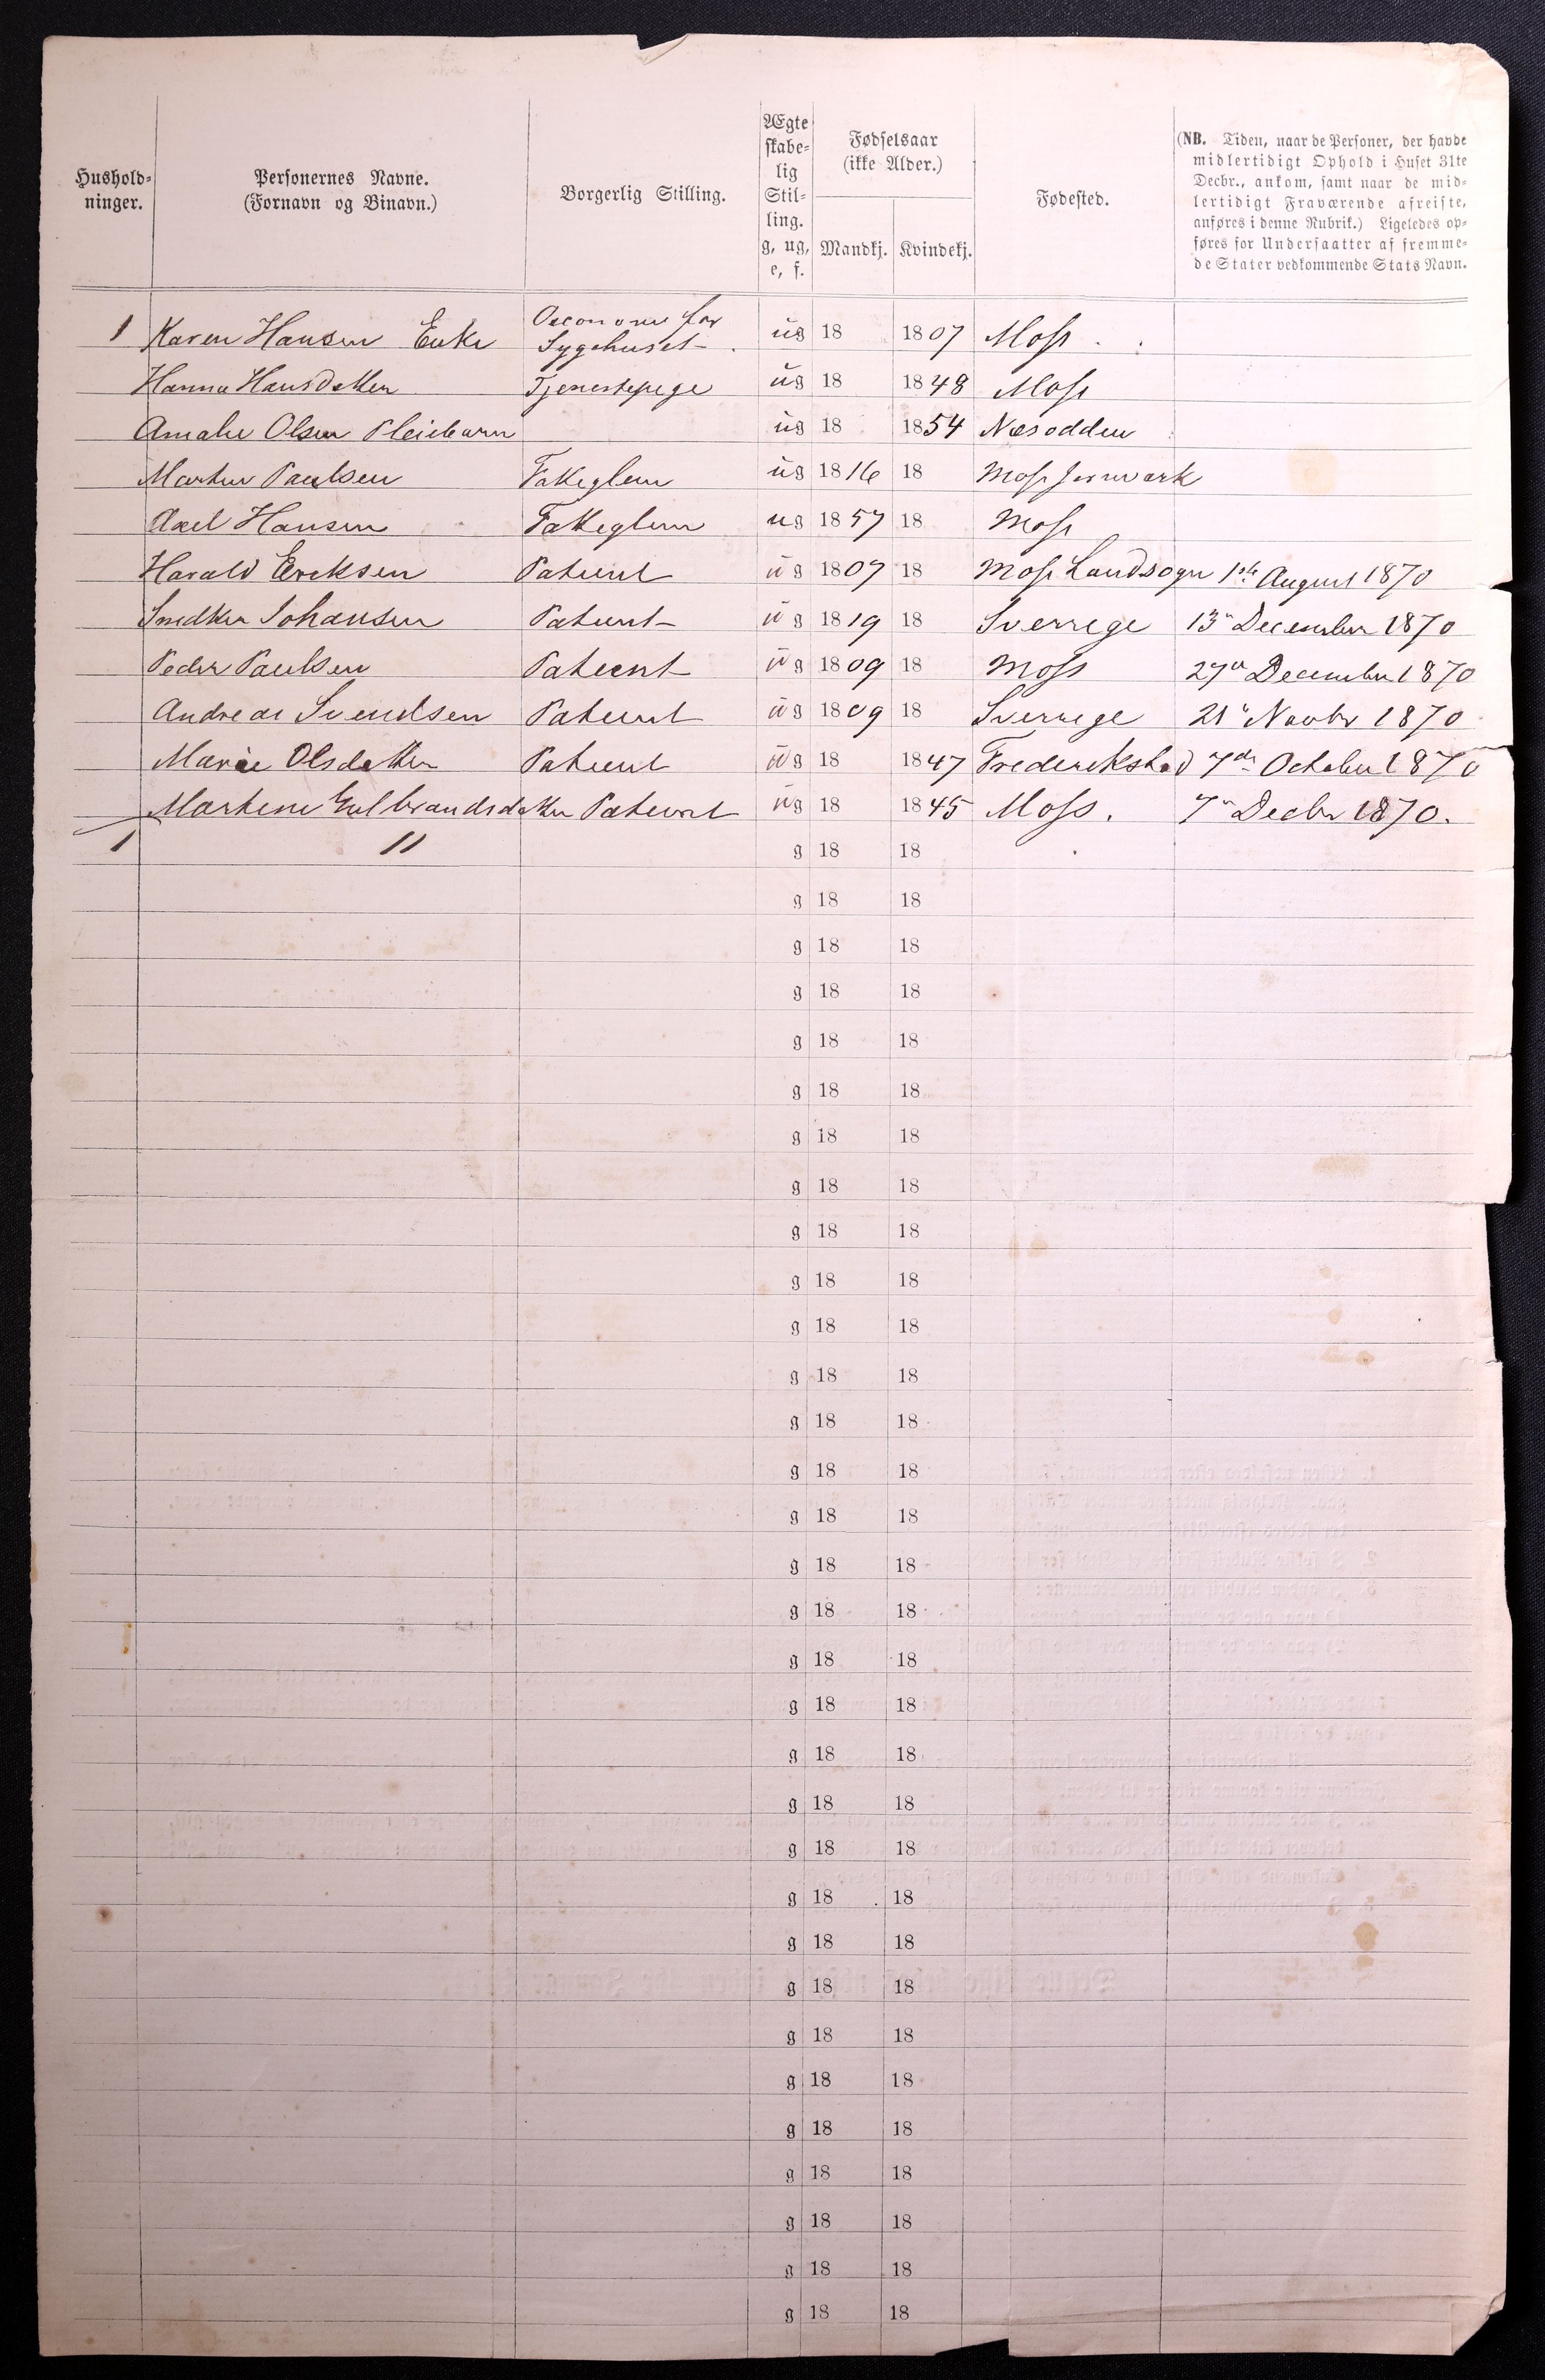 Hushold-
ninger.
Personernes Navne.
(Fornavn og Binavn.)
Borgerlig Stilling.
Ægte
skabe-
lig
Stil-
ling.
g, ug,
e, f.
Fødselsaar
(ikke Alder.)
Mandkj. Kvindekj.
Fødested.
(NB. Tiden, naar de Personer, der havde
midlertidigt Ophold i Huset 31te
Decbr., ankom, samt naar de mid-
lertidigt Fraværende afreiste,
anføres i denne Rubrik.) Ligeledes op-
føres for Undersaatter af fremme-
de Stater vedkommende Stats Navn.
Oeconom for
1 Karen Hansen Enke Sygehuset ug 18 1807 Moss
Hanna Hansdatter Tjenestepige ug 18 1848 Moss
Amalie Olsen Pleiebarn ug 18 1854 Næsodden
Martin Paulsen Fatteglem ug 1816 18 Moss Jernværk
Axel Hansen Fatteglem ug 1857 18 Moss
Harald Ericksen Patient ug 1807 18 Moss Landsogn 1ste August 1870
Snedker Johansen Patient ug 1819 18 Sverrege 13de December 1870
Peder Paulsen Patient ug 1809 18 Moss 27de December 1870
Andreas Svendsen Patient ug 1809 18 Sverrege 21 Novbr 1870
Marie Olsdatter Patient ug 18 1847 Frederikstad 7de October 1870
Martene Gulbrandsdatter Patient ug 18 1845 Moss. 7de Decbr 1870.
1 11 g 18 18
g 18 18
g 18 18
g 18 18
g 18 18
g 18 18
g 18 18
g 18 18
g 18 18
g 18 18
g 18 18
g 18 18
g 18 18
g 18 18
g 18 18
g 18 18
g 18 18
g 18 18
g 18 18
g 18 18
g 18 18
g 18 18
g 18 18
g 18 18
g 18 18
g 18 18
g 18 18
g 18 18
g 18 18
g 18 18
g 18 18
g 18 18